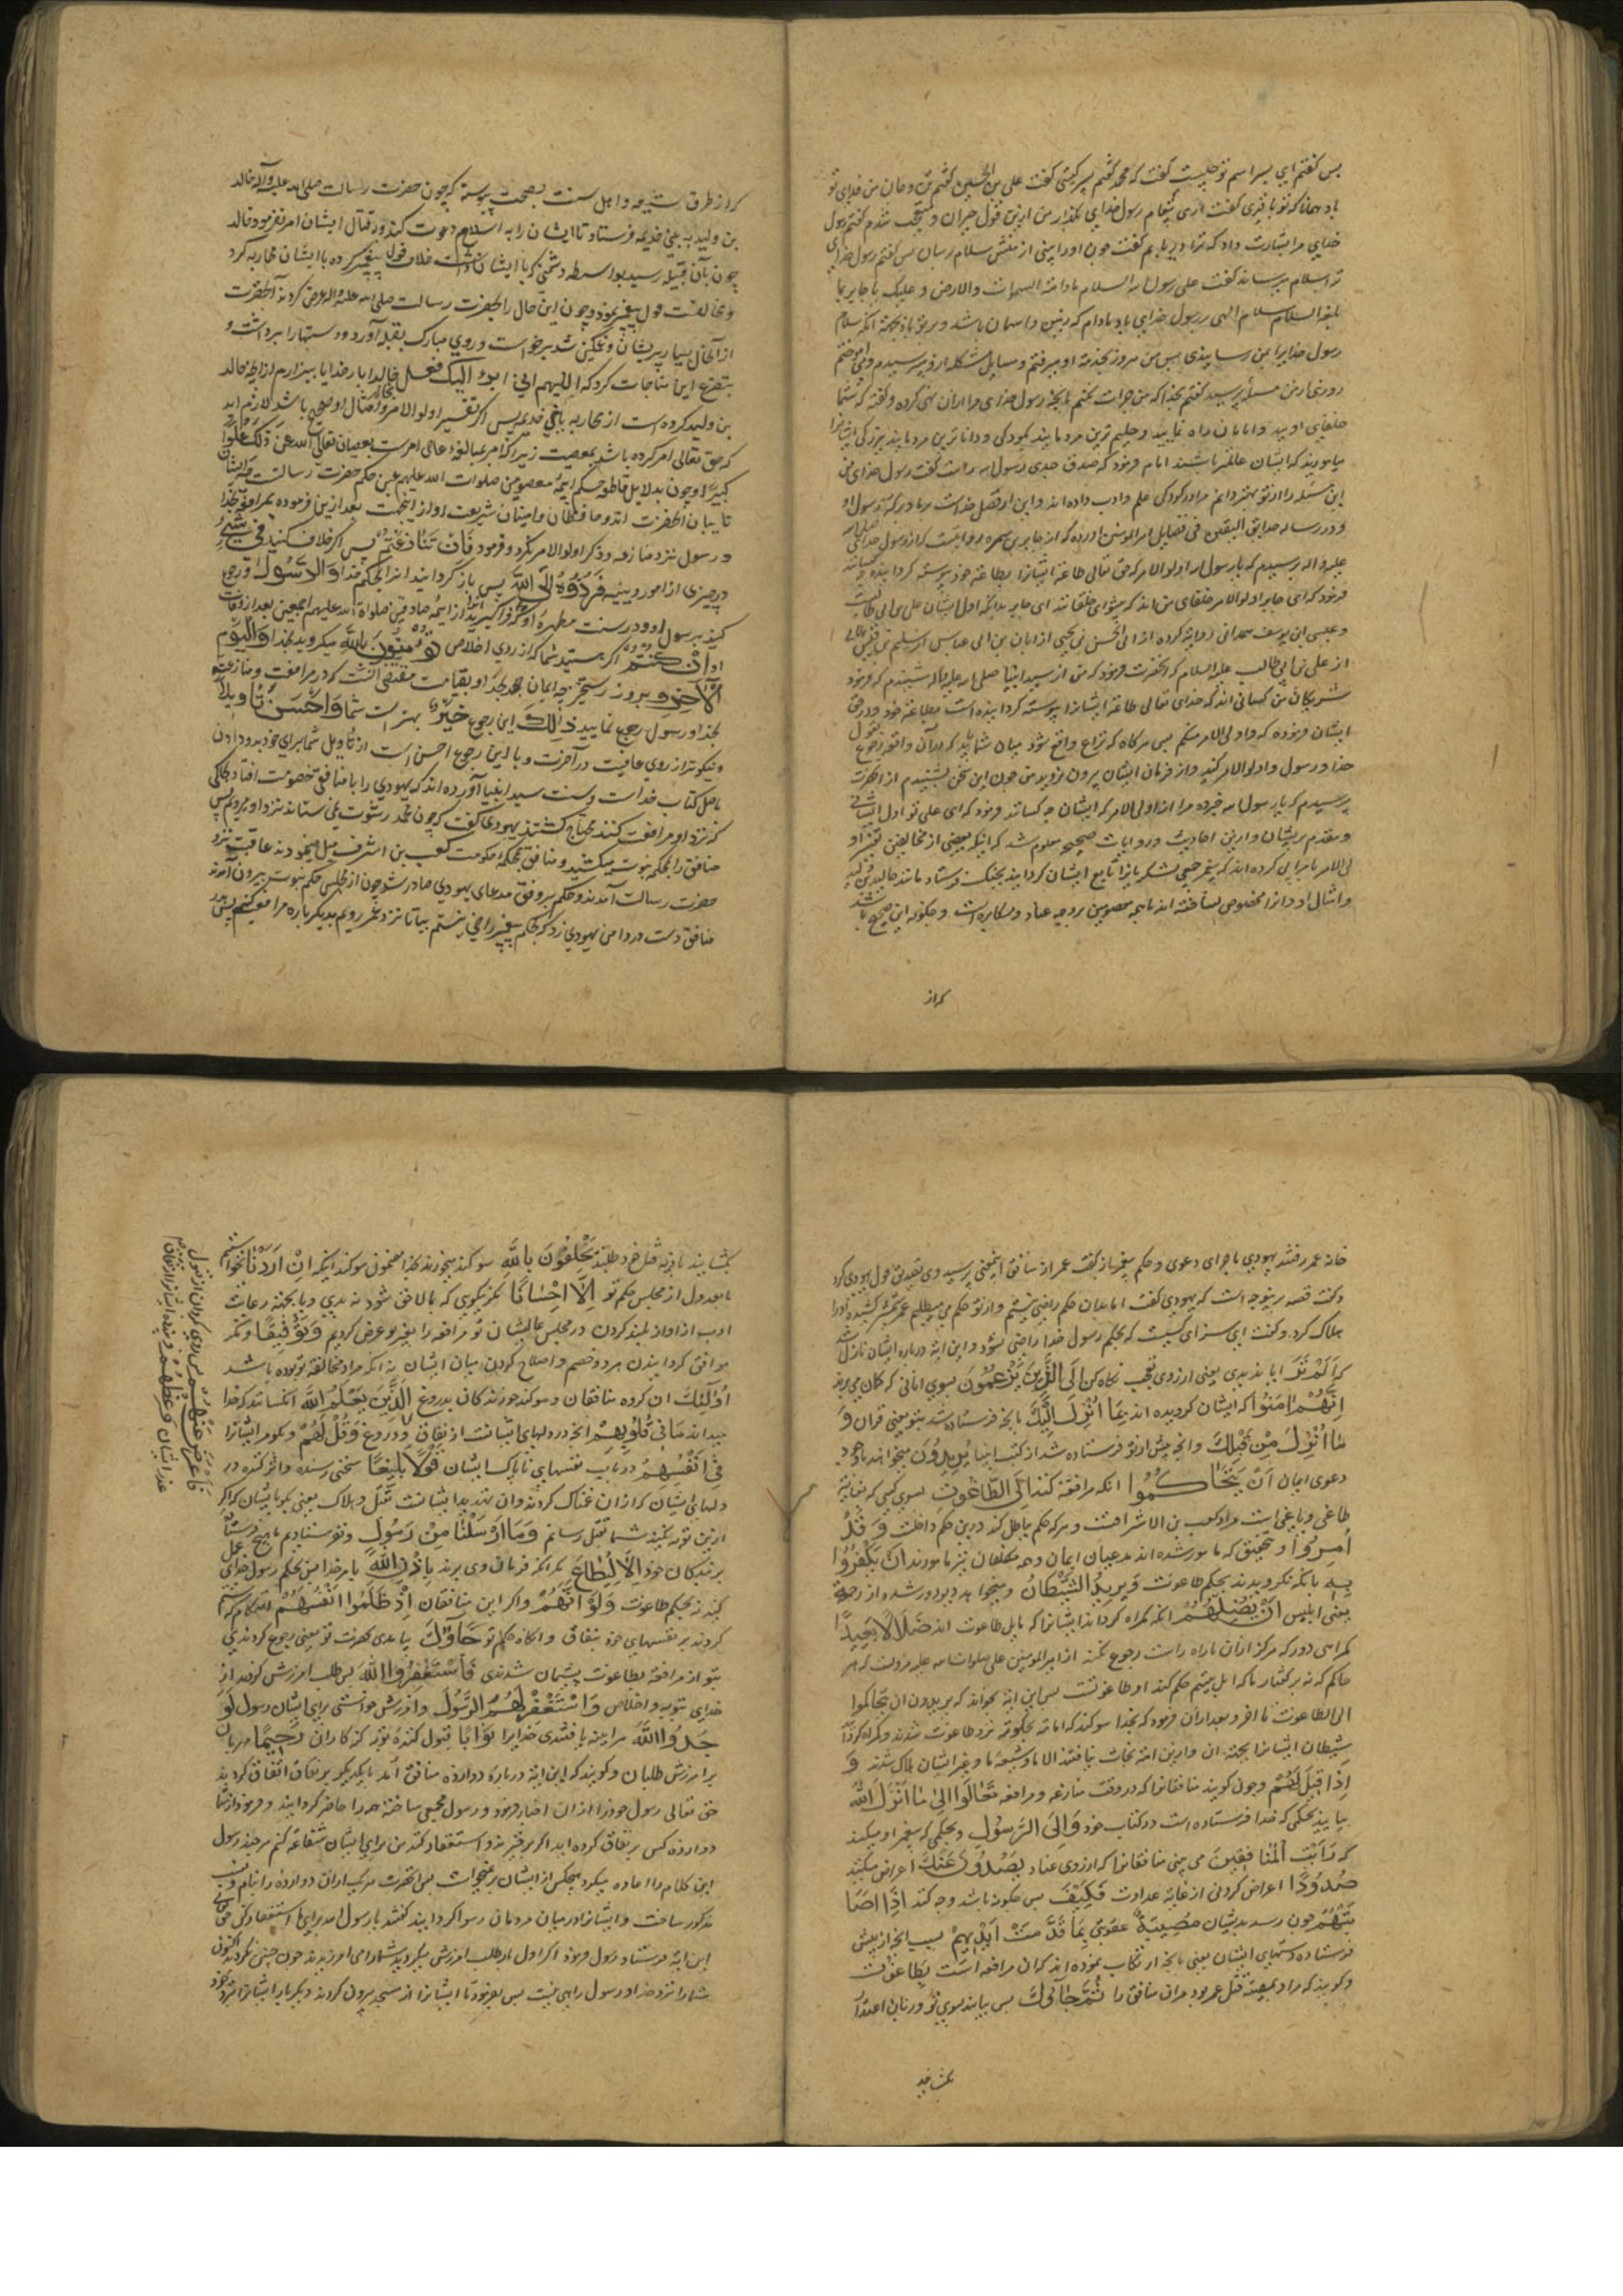 بس کفتم ای پسر اسم تو چیست کفت که محمد کفتم پسر کیستی کفت علی بن الحسین کفتم تن و جان من فدای تو
باد همانا که تو باقری کفت اری پیغام رسول خدای بگذار من ازین قول حیران و متعجب شدم کفتم رسول
خدای مرا بشارت داد که ترا دریابم کفت چون او را بینی از منش سلام رسان بس کفتم رسول خدای
ترا سلام میرساند کفت علی رسول الله السلام مادامت السموات والارض و علیک یا جابر بما
بلغت السلام سلام الهی بر رسول خدای باد مادام که زمین و اسمان باشد و بر تو باد بجهة انکه سلام
رسول خدا برا بمن رسانیدی بس من هر روز بخدمة او میرفتم و مسایل مشکله ازو میپرسیدم و می اموختم
روزی از من مسئله پرسید کفتم بخدا که من جرات نکنم بانچه رسول خدای مرا ازان نهی کرده و کفته که شما
خلفای اویید و امامان راه نمایید و حلیم ترین مردمانید بکودکی و داناترین مردمانید ببزرکی ایشانرا
میاموزید که ایشان عالمتر باشند امام فرمود که صدق جدی رسول الله راست کفت رسول خدای من
این مسئله را از تو بهتر دانم مرا در کودکی علم و ادب داده اند و این از فضل خداست بر ما و برکة رسول او
و در رساله حدایق الیقین فی فضایل امیرالمومنین اورده که از جابر بن سمره روایتست که از رسول خدا صلی الله
علیه واله پرسیدم که یا رسول الله اولوالامر که حق تعالی طاعة ایشانرا بطاعة خود پیوسته کردانیده کیانند
فرمود که ای جابر اولوالامر خلفای من اند که پیشوای خلقانند ای جابر بدانکه اول ایشان علی بن ابی طالب است
و عیسی ابن یوسف همدانی روایة کرده از ابی الحسن بن یحیی از ابان بن ابی عیاس از سلیم بن قیس هلالی
از علی بن ابی طالب علیه السلام که انحضرت فرمود که من از سید انبیا صلی الله علیه واله شنیدم که فرمود
شریکان من کسانی اند که خدای تعالی طاعة ایشانرا پیوسته کردانیده است بطاعة خود و در حق
ایشان فرموده که واولی الامر منکم بس هرکاه که نزاع واقع شود میان شما باید که دران واقعه رجوع بقول
خدا و رسول و اولوالامر کنید و از فرمان ایشان بیرون نروید من چون این سخن بشنیدم از انحضرت
پرسیدم که یا رسول الله خبرده مرا از اولی الامر که ایشان چه کسانند فرمود که ای علی تو اول ایشانی
و مقدم بریشان و ازین احادیث و روایات صحیحه معلوم شد که اینکه بعضی از مخالفین تفسیر او
لی الامر بامرایی کرده اند که پیغمبر جمیع لشکریانرا تابع ایشان کردانید بجنک فرستاد مانند خالد بن ولید
و امثال او و انرا مخصوص نساخته اند بایمه معصومین بر وجه عناد و مکابره است و چکونه این صحیح باشد
که از
که از طرق شیعه و اهل سنت بصحت پیوسته که چون حضرت رسالت صلی الله علیه وآله خالد
بن ولید به بنی خدیمه فرستاد تا ایشان را به اسلام دعوت کند و در قتال ایشان امر نفرمود خالد
چون بآن قبیله رسید بواسطه دشمنی که با ایشان داشت خلاف قول پیغمبر کرده با ایشان محاربه کرد
و مخالفت قول پیغمبر نمود و چون این حال را بحضرت رسالت صلی الله علیه واله عرض کردند آنحضرت
از آنحال بسیار پریشان و غمکین شد برخواست و روی مبارک بقبله آورد و دستها را برداشت و
بتضرع این مناجات کرد که اللهم انی ابرء الیک فعل خالد بار خدایا بیزارم از انچه خالد
بن ولید کرده است از محاربه با بنی خدیمه پس اکر تفسیر اولوالامر بخالد و امثال او صحیح باشد لازم اید
که حق تعالی امر کرده باشد بمعصیت زیرا که امر بمبالغه عاصی امر است بعصیان تعالی الله عن ذلک علوا
کبیرا و چون بدلایل قاطعه حکم ایمه معصومین صلوات الله علیهم عین حکم حضرت رسالت چه ایشان
نایبان آنحضرت اند و حافظان و امینان شریعت او از اینجهت بعد ازین فرموده بمراجعة بخدا
و رسول نزد منازعه و ذکر اولوالامر نکرد و فرمود فَإِنْ تَنَازَعْتُمْ پس اکر خلاف کنید فِي شَيْءٍ
در چیزی از امور دینیه فَرُدُّوهُ إِلَى اللَّهِ پس باز کردانید انرا بحکم خدا وَالرَّسُولِ و رجوع
کنید برسول او و در سنت مطهره او که فراگیرید از ائمه صادقین صلواة الله علیهم اجمعین بعد از وفات
او إِنْ كُنْتُمْ اکر هستید شما که از روی اخلاص تُؤْمِنُونَ بِاللَّهِ میکروید بخدا وَالْيَوْمِ
الْآخِرِ و بروز رستخیز چه ایمان بخدا و بقیامت مقتضی آنست که در مرافعت و منازعه
بخدا و رسول رجوع نمایید ذَلِكَ این رجوع خَيْرٌ بهتر است شما را وَأَحْسَنُ تَأْوِيلًا
و نیکوتر از روی عاقبت در آخرت و یا این رجوع احسن است از تأویل شما برای خود بدون
باصل کتاب خداست و سنت سید انبیا آورده اند که یهودی را با منافقی خصومت افتاد بحاکمی
که نزد او مرافعت کنند محتاج کشتند یهودی کفت که چون محمد رشوت نمی ستاند نزد او میرویم پس
منافق را بحکم نبوت میکشید و منافق بحکمه حکومت کعب بن اشرف میل مینمود تا عاقبت نزد
حضرت رسالت آمدند و حکم بر وفق مدعای یهودی صادر شد چون از مجلس حکم نبوت بیرون آمدند
منافق دست در دامن یهودی زد که بحکم پیغمبر راضی نیستم بیا تا نزد عمر رویم و دیکرباره مرافعه کنیم پس بدر
خانه عمر رفتند یهودی ماجرای دعوی و حکم پیغمبر باز کفت عمر از منافق اینمعنی پرسید وی تصدیق قول یهودی کرد
و کفت قصه برینوجه است که یهودی کفت اما بدان حکم راضی نیستم و از تو حکم می طلبم عمر شمشیر کشیده او را
هلاک کرد و کفت این سزای کسیت که بحکم رسول خدا راضی نشود و این ایة درباره ایشان نازل شد
که أَلَمْ تَرَ ایا ندیدی یعنی از روی تعجب نکاه کن إِلَى الَّذِينَ يَزْعُمُونَ بسوی انانی که کمان می برند
أَنَّهُمْ آمَنُوا که ایشان کرویده اند بِمَا أُنْزِلَ إِلَيْكَ بانچه فرستاده شد بتو یعنی قران وَ
مَا أُنْزِلَ مِنْ قَبْلِكَ وانچه پیش از تو فرستاده شد از کتب انبیا يُرِيدُونَ میخواهند با وجود
دعوی ایمان أَنْ يَتَحَاكَمُوا انکه مرافعه کنند إِلَى الطَّاغُوتِ بسوی کسی که بغایة
طاغی و یاغی است مراد کعب بن الاشرافست و هرکه حکم باطل کند درین حکم داخلست وَقَدْ
أُمِرُوا و بتحقیق که مامور شده اند مدعیان ایمان و همه مکلفان نیز مامورند أَنْ يَكْفُرُوا
بِهِ بانکه نکروند بحکم طاغوت وَيُرِيدُ الشَّيْطَانُ و میخواهد دیو دور شده از رحمة
یعنی ابلیس أَنْ يُضِلَّهُمْ انکه کمراه کرداند ایشانرا که بابل طاغوت اند ضَلَالًا بَعِيدًا
کمراهی دور که هرکز ازان باراه راست رجوع نکنند از امیرالمومنین علی صلوات الله علیه مرویست که هر
حاکم که نه بر کفتار ما که اهل بیتیم حکم کند او طاغوتست پس این ایة بخواند که یریدون ان یتحاکموا
الی الطاغوت تا اخر و بعد ازان فرمود که بخدا سوکند که امة بحکومة نزد طاغوت شدند و کمراه کرد
شیطان ایشانرا بجهة ان و ازین امة نجات نیافتند الا ما و شیعة ما و غیر ایشان هلاک شدند وَ
إِذَا قِيلَ لَهُمْ وچون کویند منافقانرا که در وقت منازعه و مرافعه تَعَالَوْا إِلَى مَا أَنْزَلَ اللَّهُ
بیایید بحکمی که خدا فرستاده است در کتاب خود وَإِلَى الرَّسُولِ و بحکمی که پیغمبر او میکند
که رَأَيْتَ الْمُنَافِقِينَ می بینی منافقانرا که از روی عناد يَصُدُّونَ عَنْكَ اعراض میکنند
صُدُودًا اعراض کردنی از غایة عداوت فَكَيْفَ پس چکونه باشد و چه کنند إِذَا أَصَا
بَتْهُمْ چون رسد بدیشان مُصِيبَةٌ عقوبتی بِمَا قَدَّمَتْ أَيْدِيهِمْ بسبب انچه از پیش
فرستاده دستهای ایشان یعنی بانچه ارتکاب نموده اند که ان مرافعه است بطاغوت
و کویند که مراد بمصیبة قتل عمر بود مران منافق را ثُمَّ جَاءُوكَ پس بیایند بسوی تو و زبان اعتذار
بکشایند
بکشایند تا دیة قتل خود طلبند يَحْلِفُونَ بِاللَّهِ سوکند میخورند بخدا مضمون سوکند اینکه إِنْ أَرَدْنَا نخواستیم
ما بعدول از مجلس حکم تو إِلَّا إِحْسَانًا مکر نیکویی که بالاخر شود نه بدی و یا بجهة رعایت
ادب از اواز بلند کردن در مجلس عالیشان تو مرافعه را بغیر تو عرض کردیم وَتَوْفِيقًا و مکر
موافق کردانیدن هر دو خصم و اصلاح کردن میان ایشان نه انکه مراد مخالفة تو بوده باشد
أُولَئِكَ ان کروه منافقان و سوکند خورندکان بدروغ الَّذِينَ يَعْلَمُ اللَّهُ انکسانند که خدا
میداند مَا فِي قُلُوبِهِمْ انچه در دلهای ایشانست از نفاق و دروغ وَقُلْ لَهُمْ و بکو مر ایشانرا
فِي أَنْفُسِهِمْ در باب نفسهای ناپاک ایشان قَوْلًا بَلِيغًا سخنی رسنده و اثرکننده در
دلهای ایشان که ازان غمناک کردند و ان تهدید ایشانست بقتل و هلاک یعنی بکو بایشان که اکر
ازین توبه نکنید شما را بقتل رسانم وَمَا أَرْسَلْنَا مِنْ رَسُولٍ و نفرستادیم ما هیچ فرستاده
بر بندکان خود إِلَّا لِيُطَاعَ مکر انکه فرمان وی برند بِإِذْنِ اللَّهِ بامر خدا پس بحکم رسول خدا عمل
کنند نه بحکم طاغوت وَلَوْ أَنَّهُمْ و اکر این منافقان إِذْ ظَلَمُوا أَنْفُسَهُمْ انهنکام که ستم
کردند بر نفسهای خود بنفاق و انکار حکم تو جَاءُوكَ بیامدی بحضرت تو یعنی رجوع کردندی
بتو از مرافعة بطاغوت پشیمان شدندی فَاسْتَغْفَرُوا اللَّهَ پس طلب امرزش کردندی از
خدای بتوبه و اخلاص وَاسْتَغْفَرَ لَهُمُ الرَّسُولُ و امرزش خواستی برای ایشان رسول لَوَ
جَدُوا اللَّهَ هراینه یافتندی خدایرا تَوَّابًا قبول کننده توبه کنه کاران رَحِيمًا مهربان
بر امرزش طلبان و کویند که این ایة درباره دوازده منافق آمد با یکدیکر بر نفاق اتفاق کردند
حق تعالی رسول خود را ازان اخبار فرمود و رسول مجمعی ساخته همه را حاضر کردانید و فرمود از شما
دوازده کس بر نفاق کرده اید اکر برخیزند و استغفار کنند من برای ایشان شفاعة کنم هرچند رسول
این کلام را اعاده میکرد هیچکس از ایشان برنمیخواست پس انحضرت هریک ازان دوازده را بنام و نسب
مذکور ساخت و ایشانرا در میان مردمان رسوا کردانید کفتند یا رسول الله برای ما استغفار کن حق تعالی
این ایة فرستاد رسول فرمود اکر اول بار طلب امرزش میکردید شما را می امرزیدند چون چنین نکردید اکنون
شما را نزد خدا و رسول راهی نیست پس بفرمود تا ایشانرا از مسجد بیرون کردند و دیکر بار ایشانرا نزد خود
فَأَعْرِضْ عَنْهُمْ پس روی بکردان از قبول
عذر ایشان وَعِظْهُمْ و پند ده ایشانرا بزبان